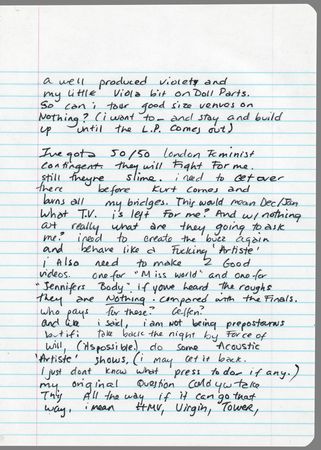 a well produced violet, and
my little Viola bit on Doll Parts.
So can i tour good size venues on
Nothing? (i want to - and stay and build
up until the L.P. comes out)
I've got a 50/50 london Feminist
contingent they will Fight For me.
still theyre slime. i need to get over
there before Kurt comes and
burns all my bridges. This would mean Dec/Jan
What T.V. is left For me? And w/ nothing
out really what are they going to ask
me? i need to create the buzz again
and behave like a Fucking 'Artiste'
i Also need to make 2 Good
videos. one for "Miss World" and one for
"Jennifers Body". if youve heard the roughs
they are Nothing. compared with the Finals.
who pays for these? Geffen?
and like i said, i am not being preposterous
but if i Take back the night by Force of
Will, (its possible) do some Acoustic
'Artiste' shows. (i may get it back.
I just dont know what press to do if any.)
my original Question Could yw take
This All the way if it can go that
way, i mean HMV, Virgin, Tower,